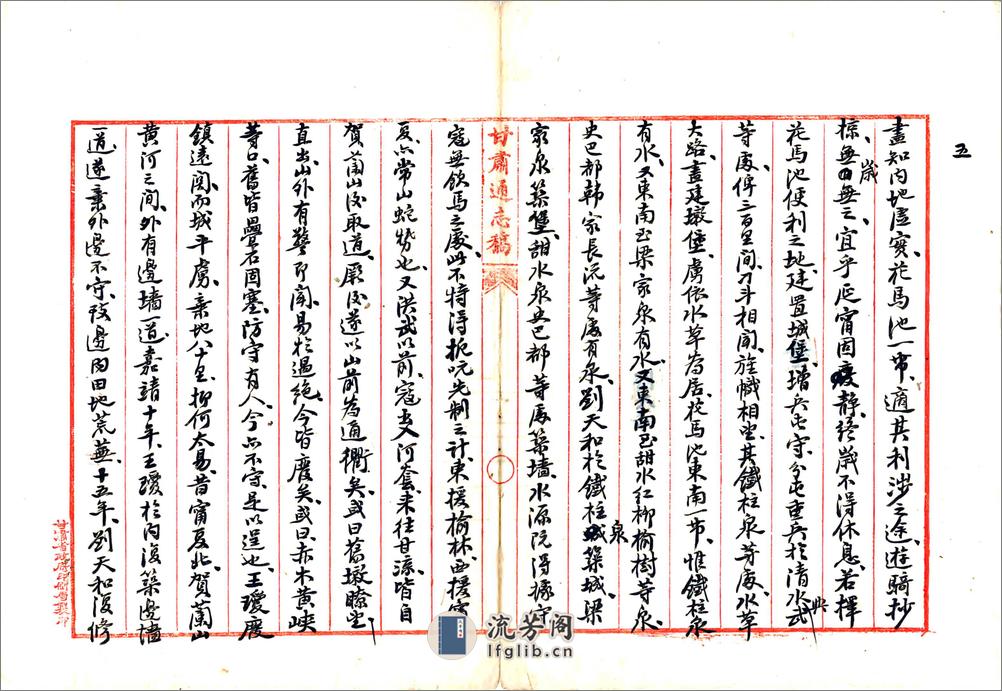 五
盡知内地虛實花馬池一帶適其利涉之途遊騎抄
掠無歲無之宜乎延甯固靜終歲不得休息若擇
花馬池便利之地建置城堡增兵屯守分屯重兵於清水武興
等處俾三百里間刀斗相聞旌幟相望其鐵柱泉等處水草
大路盡建墩堡虜依水草為居花馬池東南一帶惟鐵柱泉
有水又東南至梁家泉有水又東南至甜水紅柳榆樹等泉
史巴都韓家長沅等處有泉劉天和於鐵柱泉築城梁
家泉築堡甜水泉史巴都等處築墻水源阮得據守
寇無飲馬之處此不特得扼吭先制之計東援榆林西援甯
夏亦常山蛇勢也又洪武以前寇去入河套来往甘涼皆自
賀蘭山後取道厥後遂以山前為通衢矣或曰舊墩瞭望
直出山外有警即聞易於遏絶今皆廢矣或曰赤木黄峽
等口舊皆疊石固塞防守有人今亦不守是以逞也王瓊廢
鎮遠関而城平虜棄地八十里抑何太易昔甯夏北賀蘭山
黄河之間外有邊墻一道嘉靖十年王瓊於内復築邊墻
一道遂棄外邊不守致邊内田地荒蕪十五年劉天和復修
甘肅通志稿
甘肅省政府印刷局製印
流芳阁
lfglib.cn